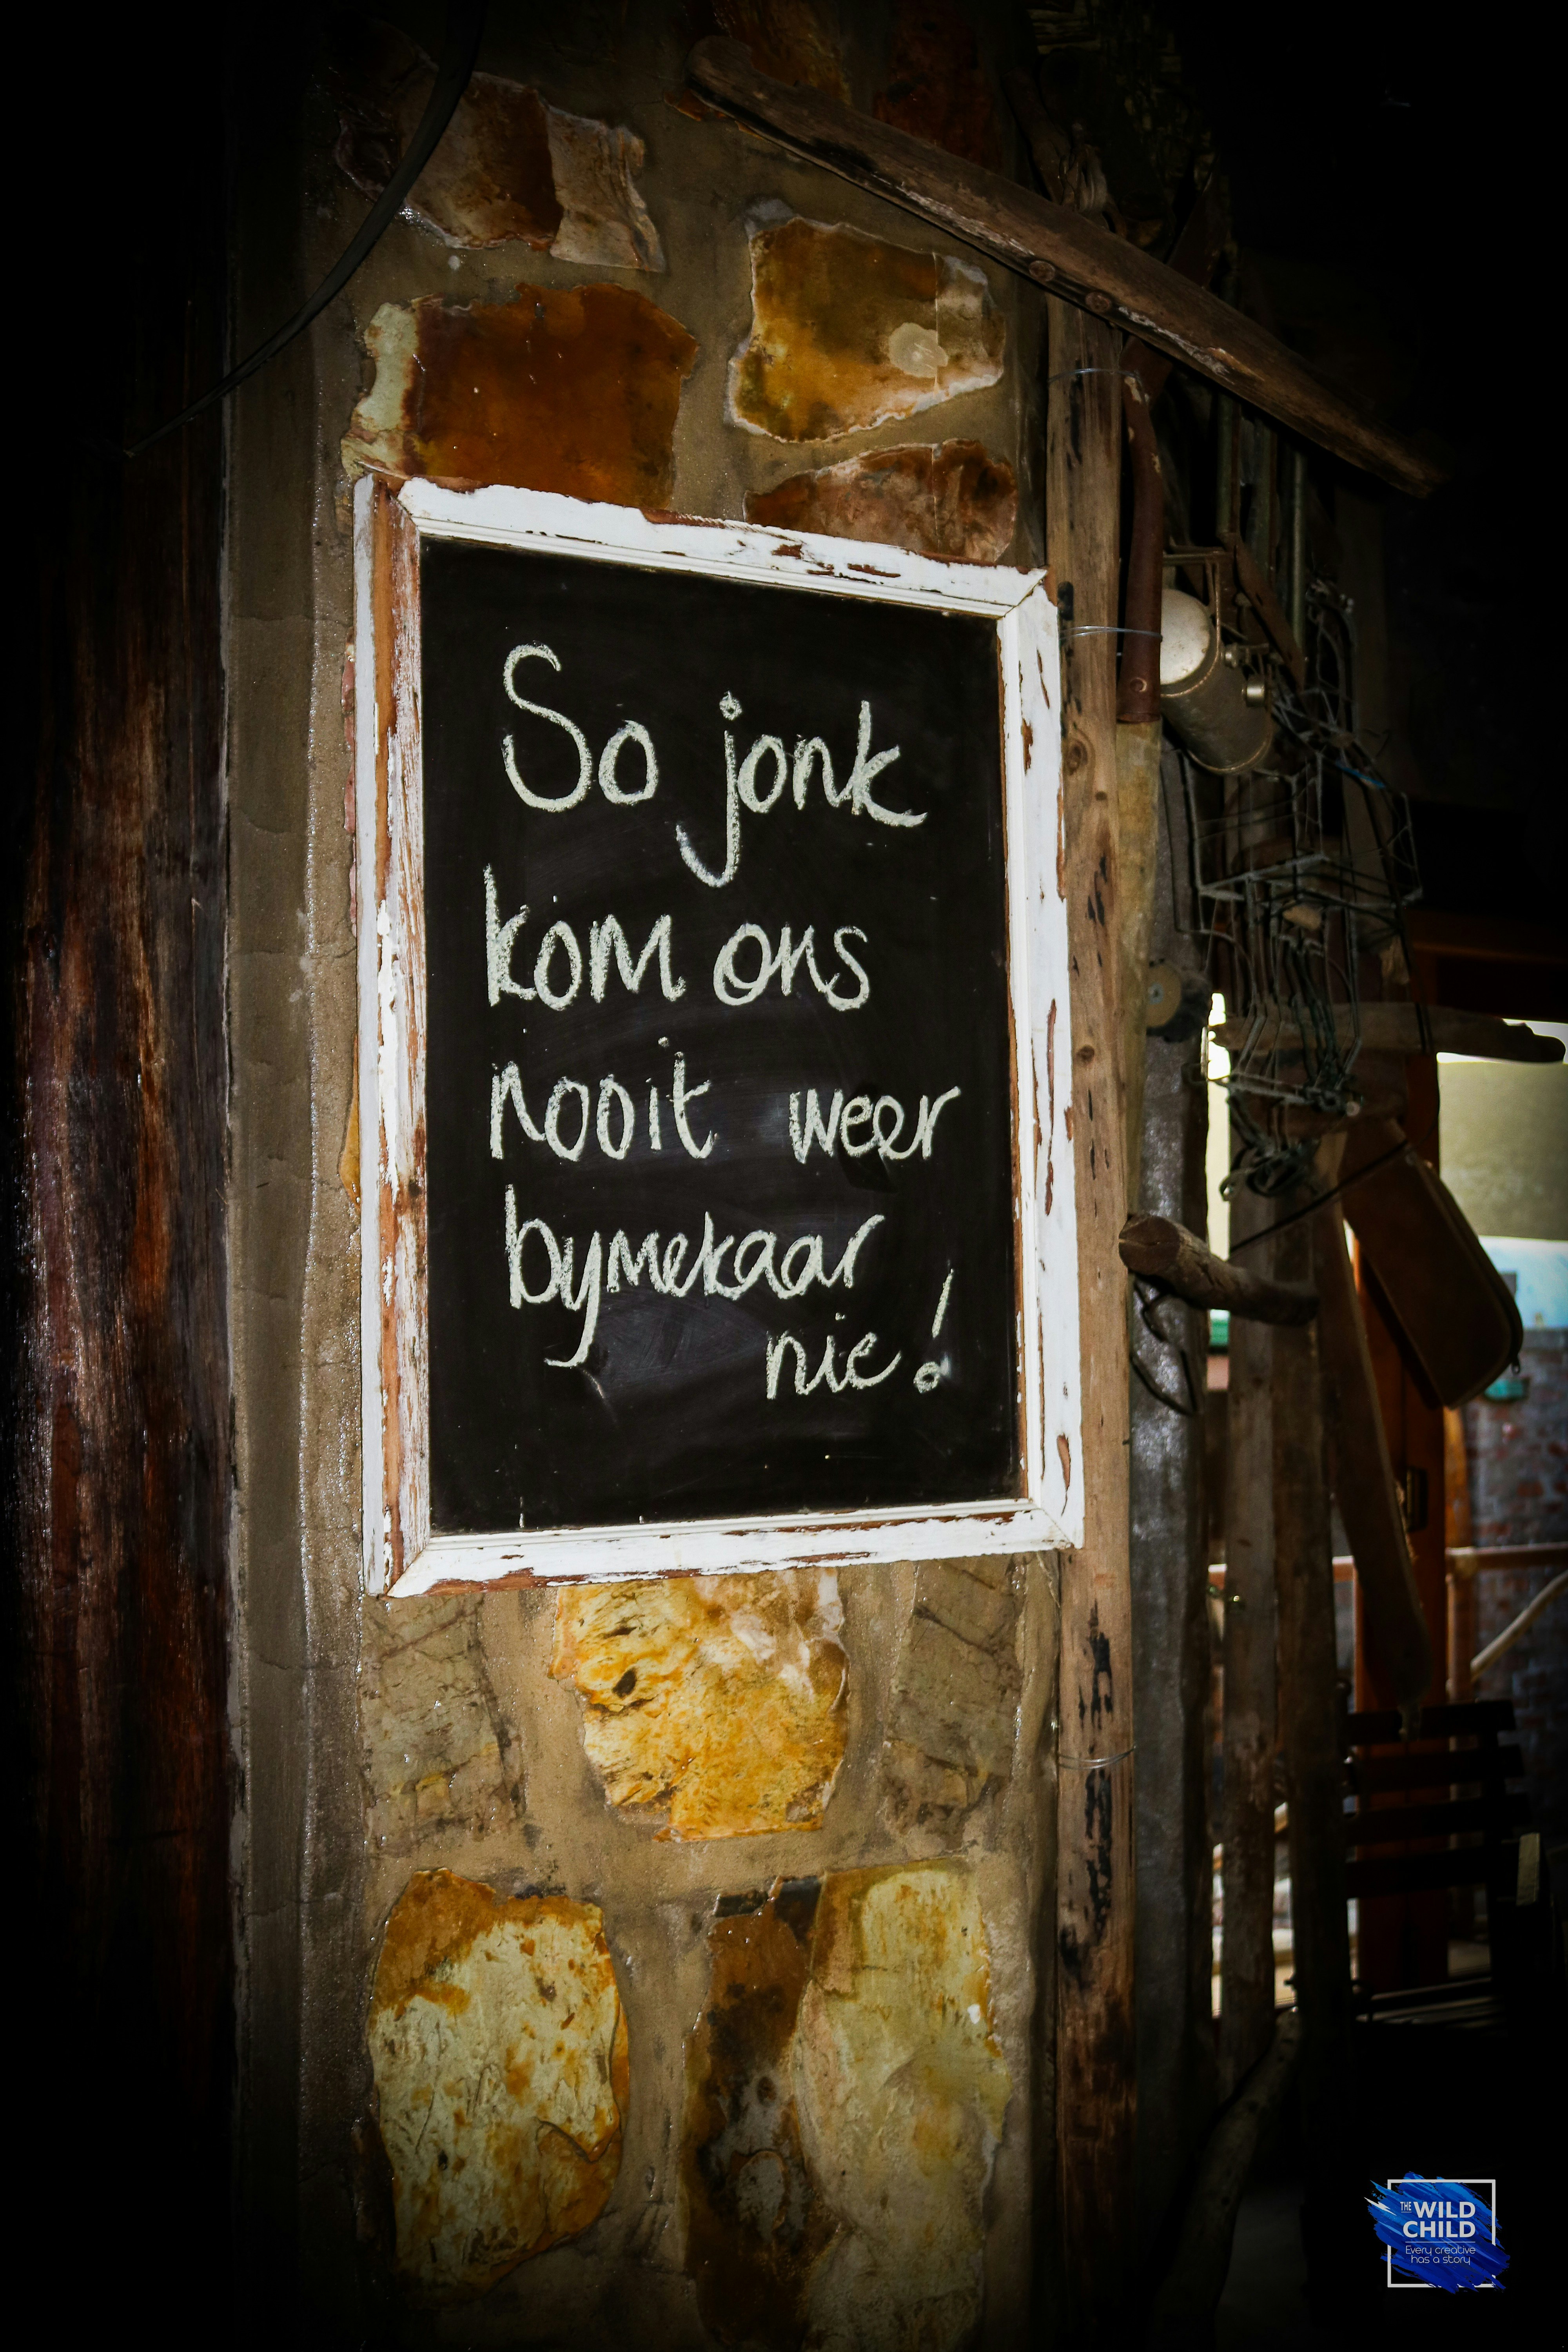 So jonk
kom ons
nooit weer
bymekaar
nie!
THE WILD
CHILD
Every creative
has a story